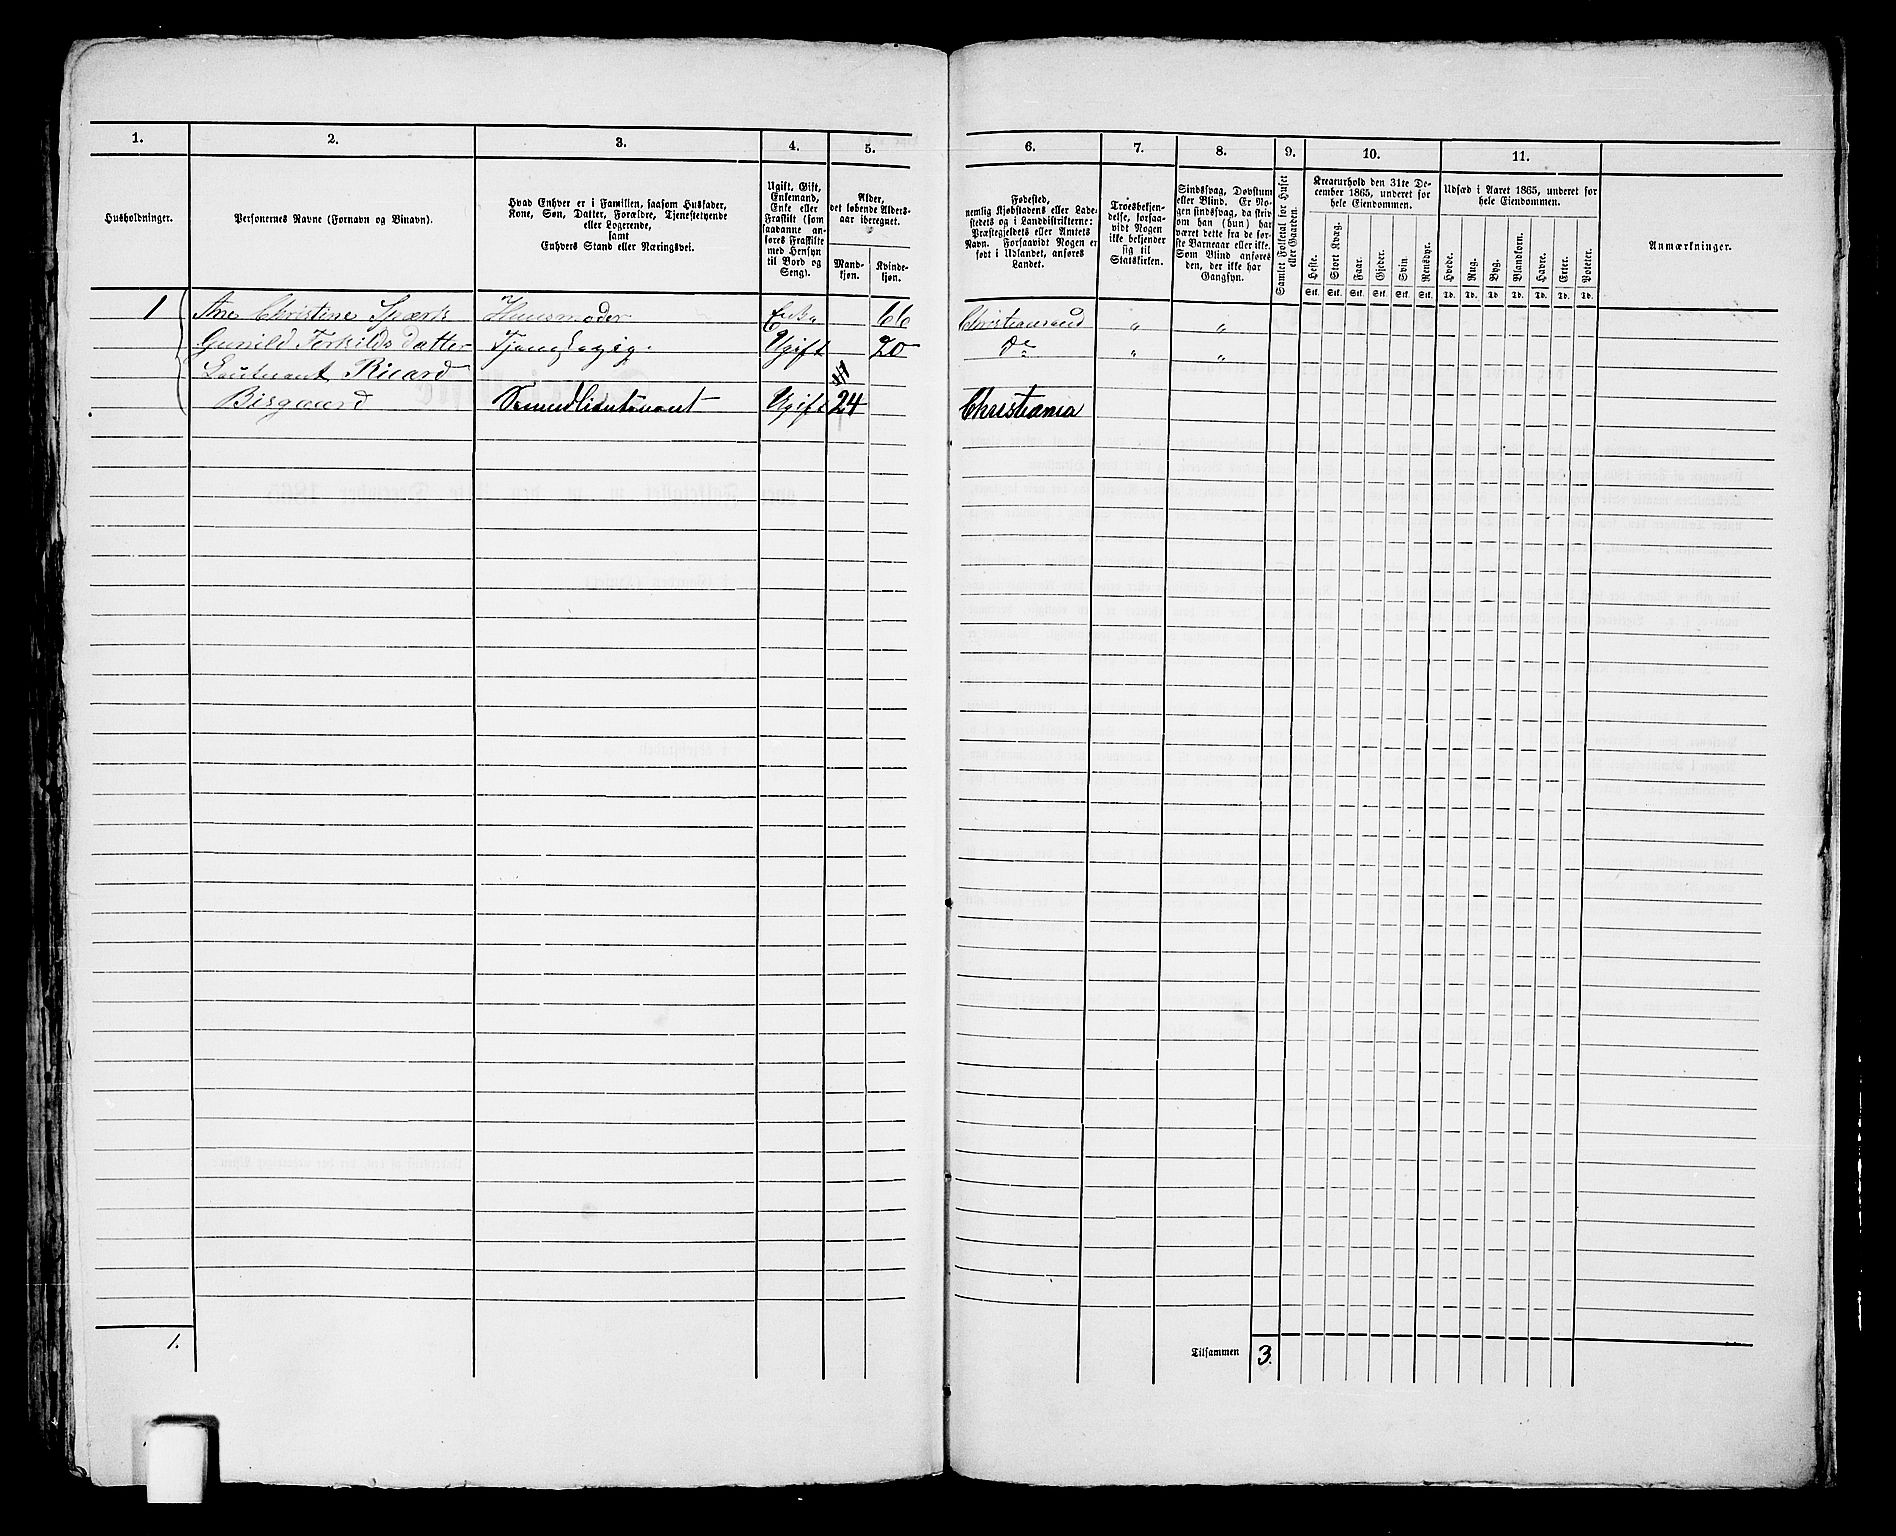 1. 2. 3. 4. 5. 6. 7. 8. 9. 10. 11.
Husholdninger.
Personernes Navne (Fornavn og Tilnavn).
Hvad Enhver er i Familien, saasom Husfader,
Kone, Søn, Datter, Forældre, Tjenestetyende
eller Logerende,
samt
Enhvers Stand eller Næringsvei.
Ugift, Gift,
Enkemand,
Enke eller
Fraskilt (som
saadanne an-
føres Fraskilte
med Hensyn
til Bord og
Seng).
Alder,
det løbende Alders-
aar iberegnet.
Mand-
kjøn.
Kvinde-
kjøn.
Fødested,
nemlig Kjøbstadens eller Lade-
stedets og i Landdistrikterne:
Præstegjeldets eller Amtets
Navn. Forsaavidt Nogen er
født i Udlandet, anføres
Landet.
Troesbekjen-
delse, forsaa-
vidt Nogen
ikke bekjender
sig til
Statskirken.
Sindssvag, Døvstum
eller Blind. Er No-
gen sindssvag, da skriv
om han (hun) har
været dette fra de før-
ste Barneaar eller ikke.
Som Blind anføres
den, der ikke har
Gangsyn.
Samlet Folketal for Huset
eller Gaarden.
Kreaturhold den 31te De-
cember 1865, underet for
hele Eiendommen.
Heste. Stort Kvæg. Faar. Gjeder. Svin. Rensdyr.
Stk. Stk. Stk. Stk. Stk. Stk.
Udsæd i Aaret 1865, underet for
hele Eiendommen.
Hvede. Rug. Byg. Blandkorn. Havre. Erter. Poteter.
Td. Td. Td. Td. Td. Td. Td.
Anmærkninger.
1 Ane Christine Spærk Huusmoder Enke 66 Christiansand " "
Gunild Terkildsdatter Ugift 20 do " "
Leutnant Ricard
Bisgaard Secondlieutenant Ugift 24 Christiania
1.
Tilsammen 3.